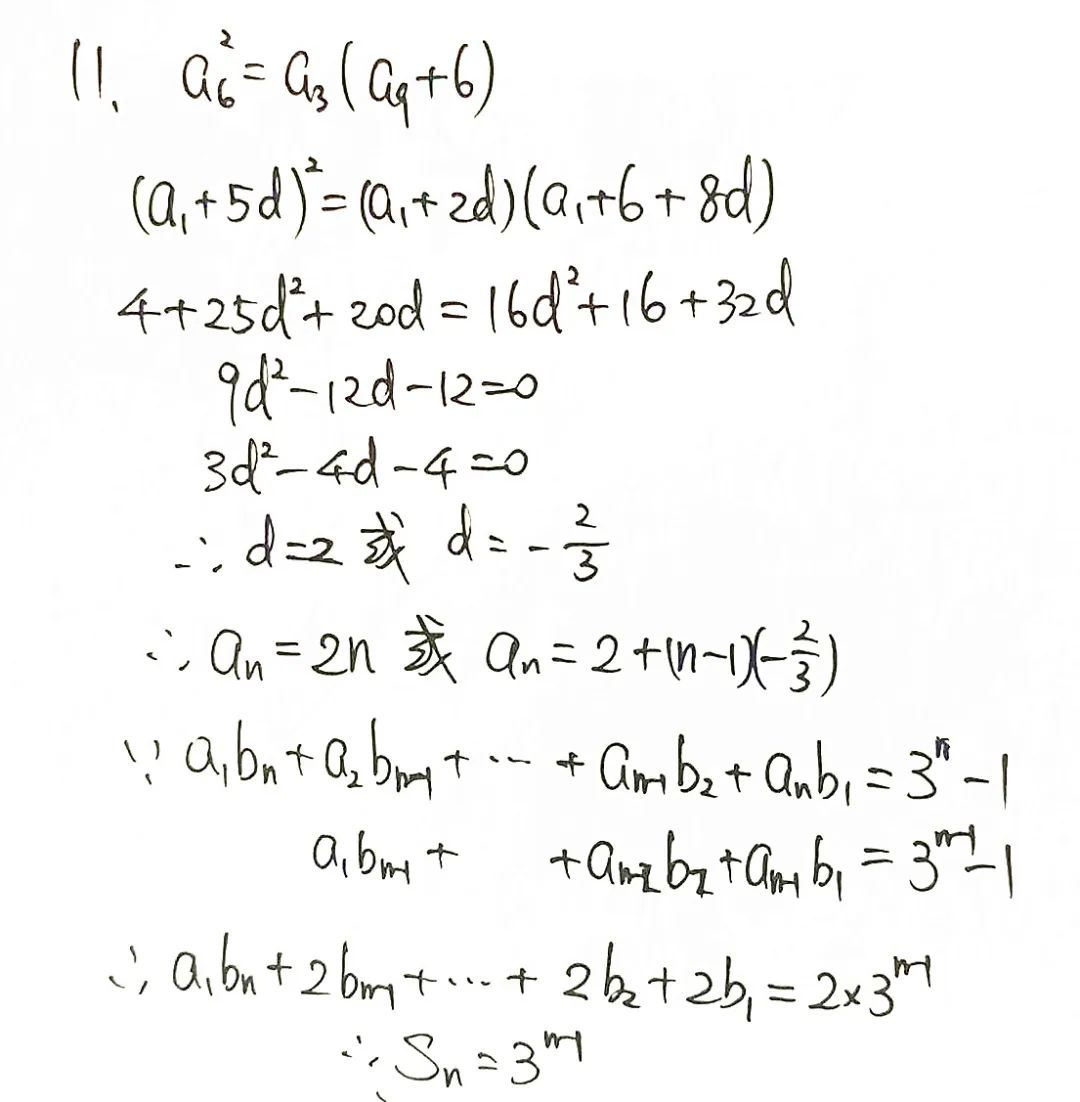 11. a₆² = a₃(a₉+6)
(a₁+5d)² = (a₁+2d)(a₁+6+8d)
4+25d²+20d = 16d²+16+32d
9d²-12d-12=0
3d²-4d-4=0
∴ d=2 或 d=-2/3
∴ aₙ=2n 或 aₙ=2+(n-1)(-2/3)
∵ a₁bₙ+a₂bₙ₋₁+⋯+aₙ₋₁b₂+aₙb₁=3ⁿ-1
a₁bₙ₋₁+ +aₙ₋₂b₂+aₙ₋₁b₁=3ⁿ⁻¹-1
∴ a₁bₙ+2bₙ₋₁+⋯+2b₂+2b₁=2×3ⁿ⁻¹
∴ Sₙ=3ⁿ⁻¹